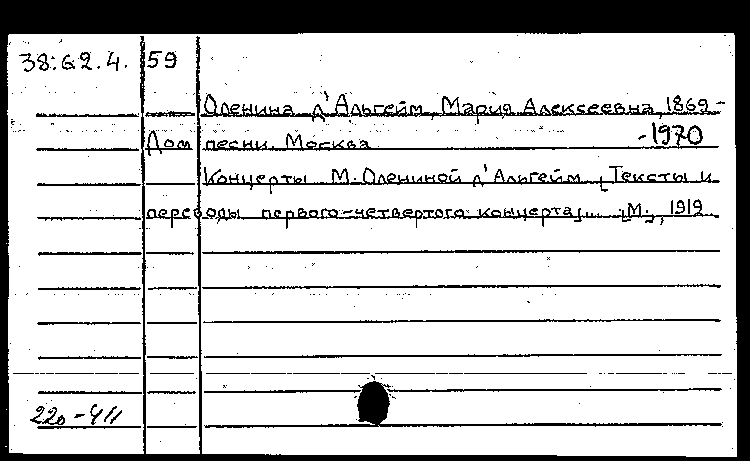 38:62.4. 59
Оленина д'Альгейм, Мария Алексеевна, 1869-
Дом песни. Москва -1970
Концерты М. Олениной д'Альгейм. [Тексты и
переводы первого-четвертого концерта]... [М.], 1919.
220-411